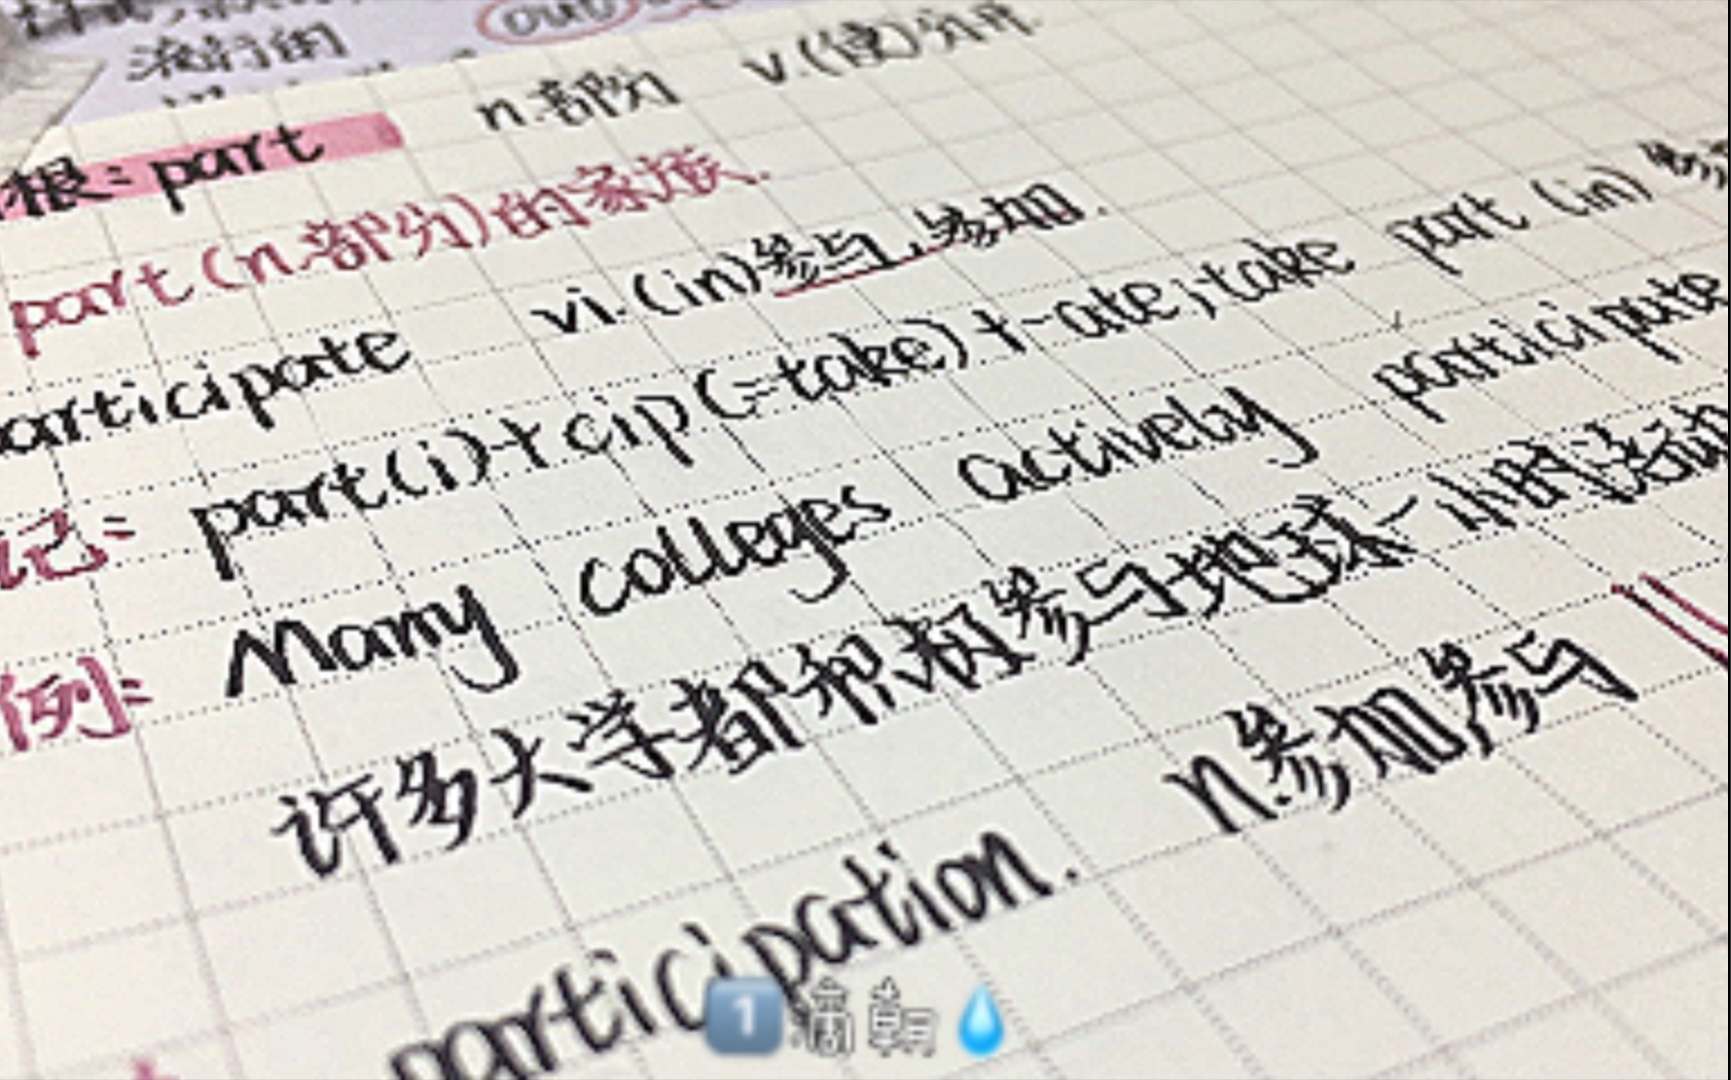 流行的
out
根：part n.部分 v.(使)分开.
part(n.部分)的家族.
articipate vi.(in)参与,参加.
记：part(i)+cip(=take)+-ate;take part (in) 参
例：Many colleges actively participate
许多大学都积极参与地球一小时活动
participation. n.参加,参与
1 滴 朝 💧